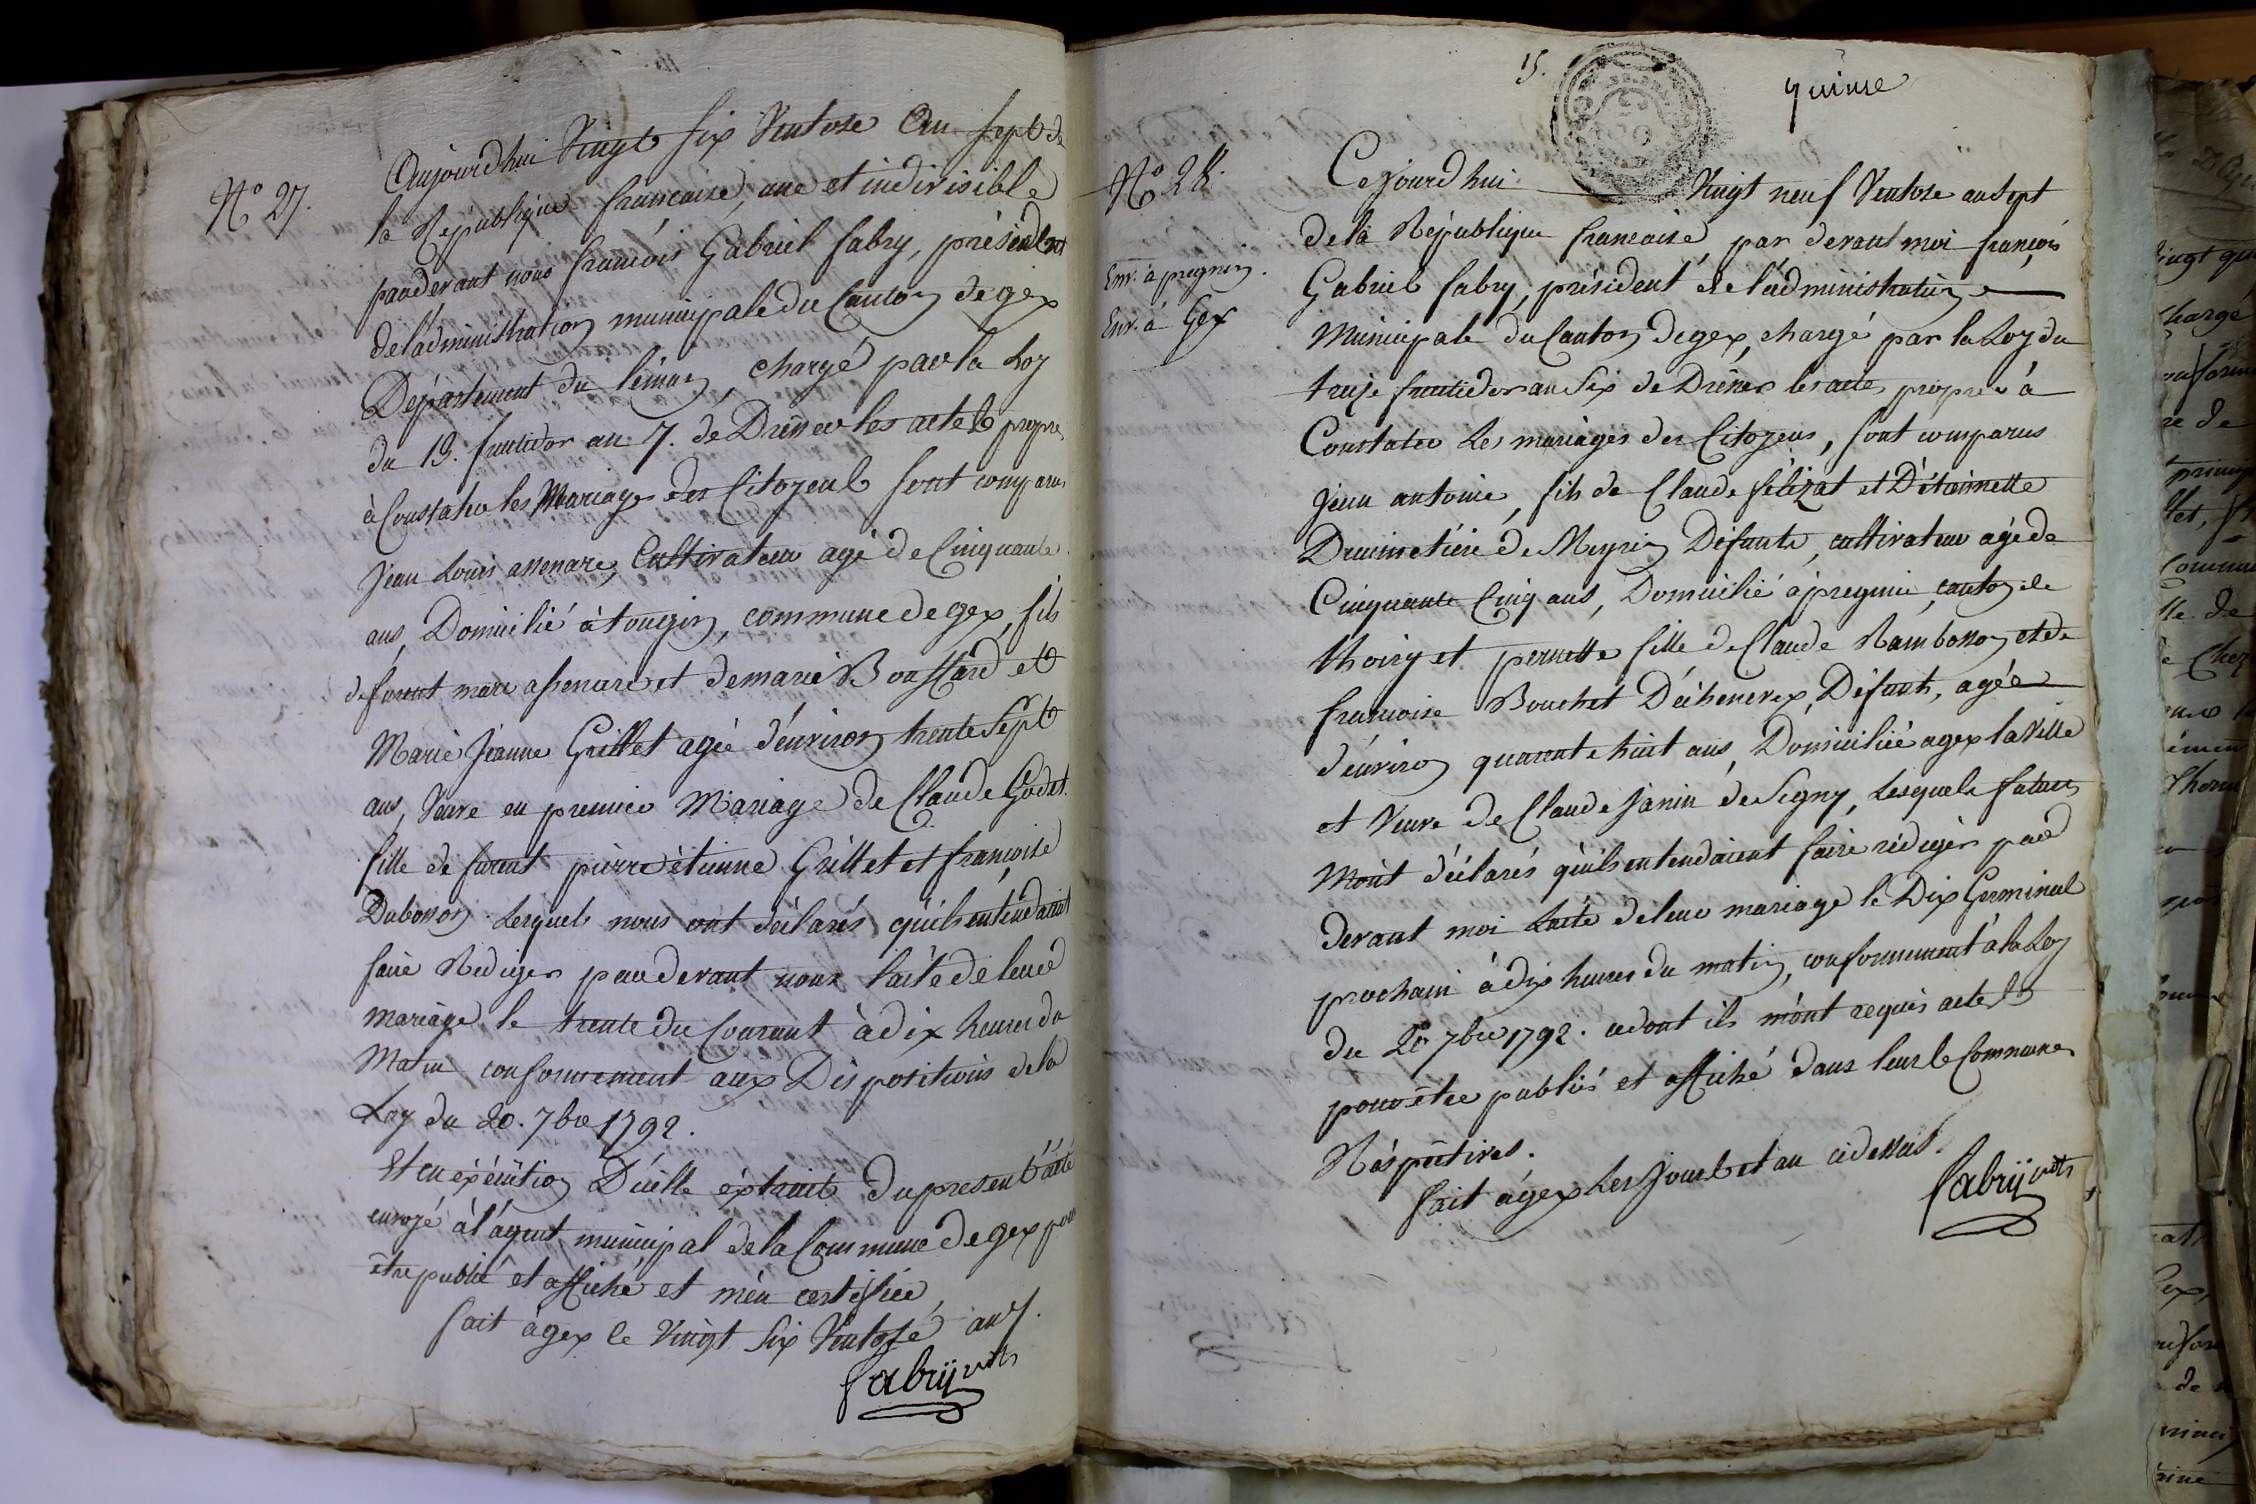 N° 27.
Aujourdhui Vingt six Ventose An sept de
la République francaise, une et indivisible
pardevant nous francois Gabriel fabry, président
de l'administration municipale du Canton de gex
Département du léman, chargé par la Loy
du 13. fructidor an 7. de Dresser les actes propres
à Constater les Mariages des Citoyens sont comparus
Jean Louis assenare, Cultivateur agé de Cinquante
ans, Domicilié à tougin, commune de gex, fils
de furent marc assenare et de marie Boussard et
Marie Jeanne Grillet agée d'environ trente sept
ans, Veuve en premier Mariage de Claude Godet.
fille de furent pierre étienne Grillet et françoise
Dubosson. Lesquels nous ont déclarés qu'ils entendaient
faire Rediger pardevant nous l'acte de leur
mariage le trente du Courant à dix heures du
Matin conformement aux Dispositions de la
Loy du 20. 7bre 1792.
Et en éxécution D'icelle éxtrait du present acte
envoyé à l'agent municipal de la Commune de gex pour
être publié et affiché et m'en certifier,
fait à gex le Vingt six Ventose an 7.
fabry
15.
quinse
N° 28.
Env. à pregnin.
Env. à Gex
Ce jourd'hui Vingt neuf Ventose an sept
de la République francaise par devant moi françois
Gabriel fabry, président de l'administration
Municipale du Canton de gex, chargé par la Loy du
treize fructidor an six de Dresser les actes propres à
Constater Les mariages des Citoyens, sont comparus
Jean antoine, fils de Claude félizat et D'étiennette
de Meyrin Défunts, cultivateur agé de
Cinquante Cinq ans, Domicilié à pregnin, canton de
thoiry et pernette fille de Claude Rambosson et de
francoise Bouchet D'échenevex, Défunts, agée
d'environ quarante huit ans, Domiciliée a gex la Ville
et Veuve de Claude Janin de Segny, Lesquels futurs
M'ont déclarés qu'ils entendaient faire rédiger par
devant moi L'acte de leur mariage le Dix Germinal
prochain à dix heures du matin, conformement à la Loy
du 20 7bre 1792. ce dont ils m'ont requis acte
pour être publiés et affiché dans leurs Communes
Réspectives.
fait à gex Les Jours et an ci dessus.
fabry